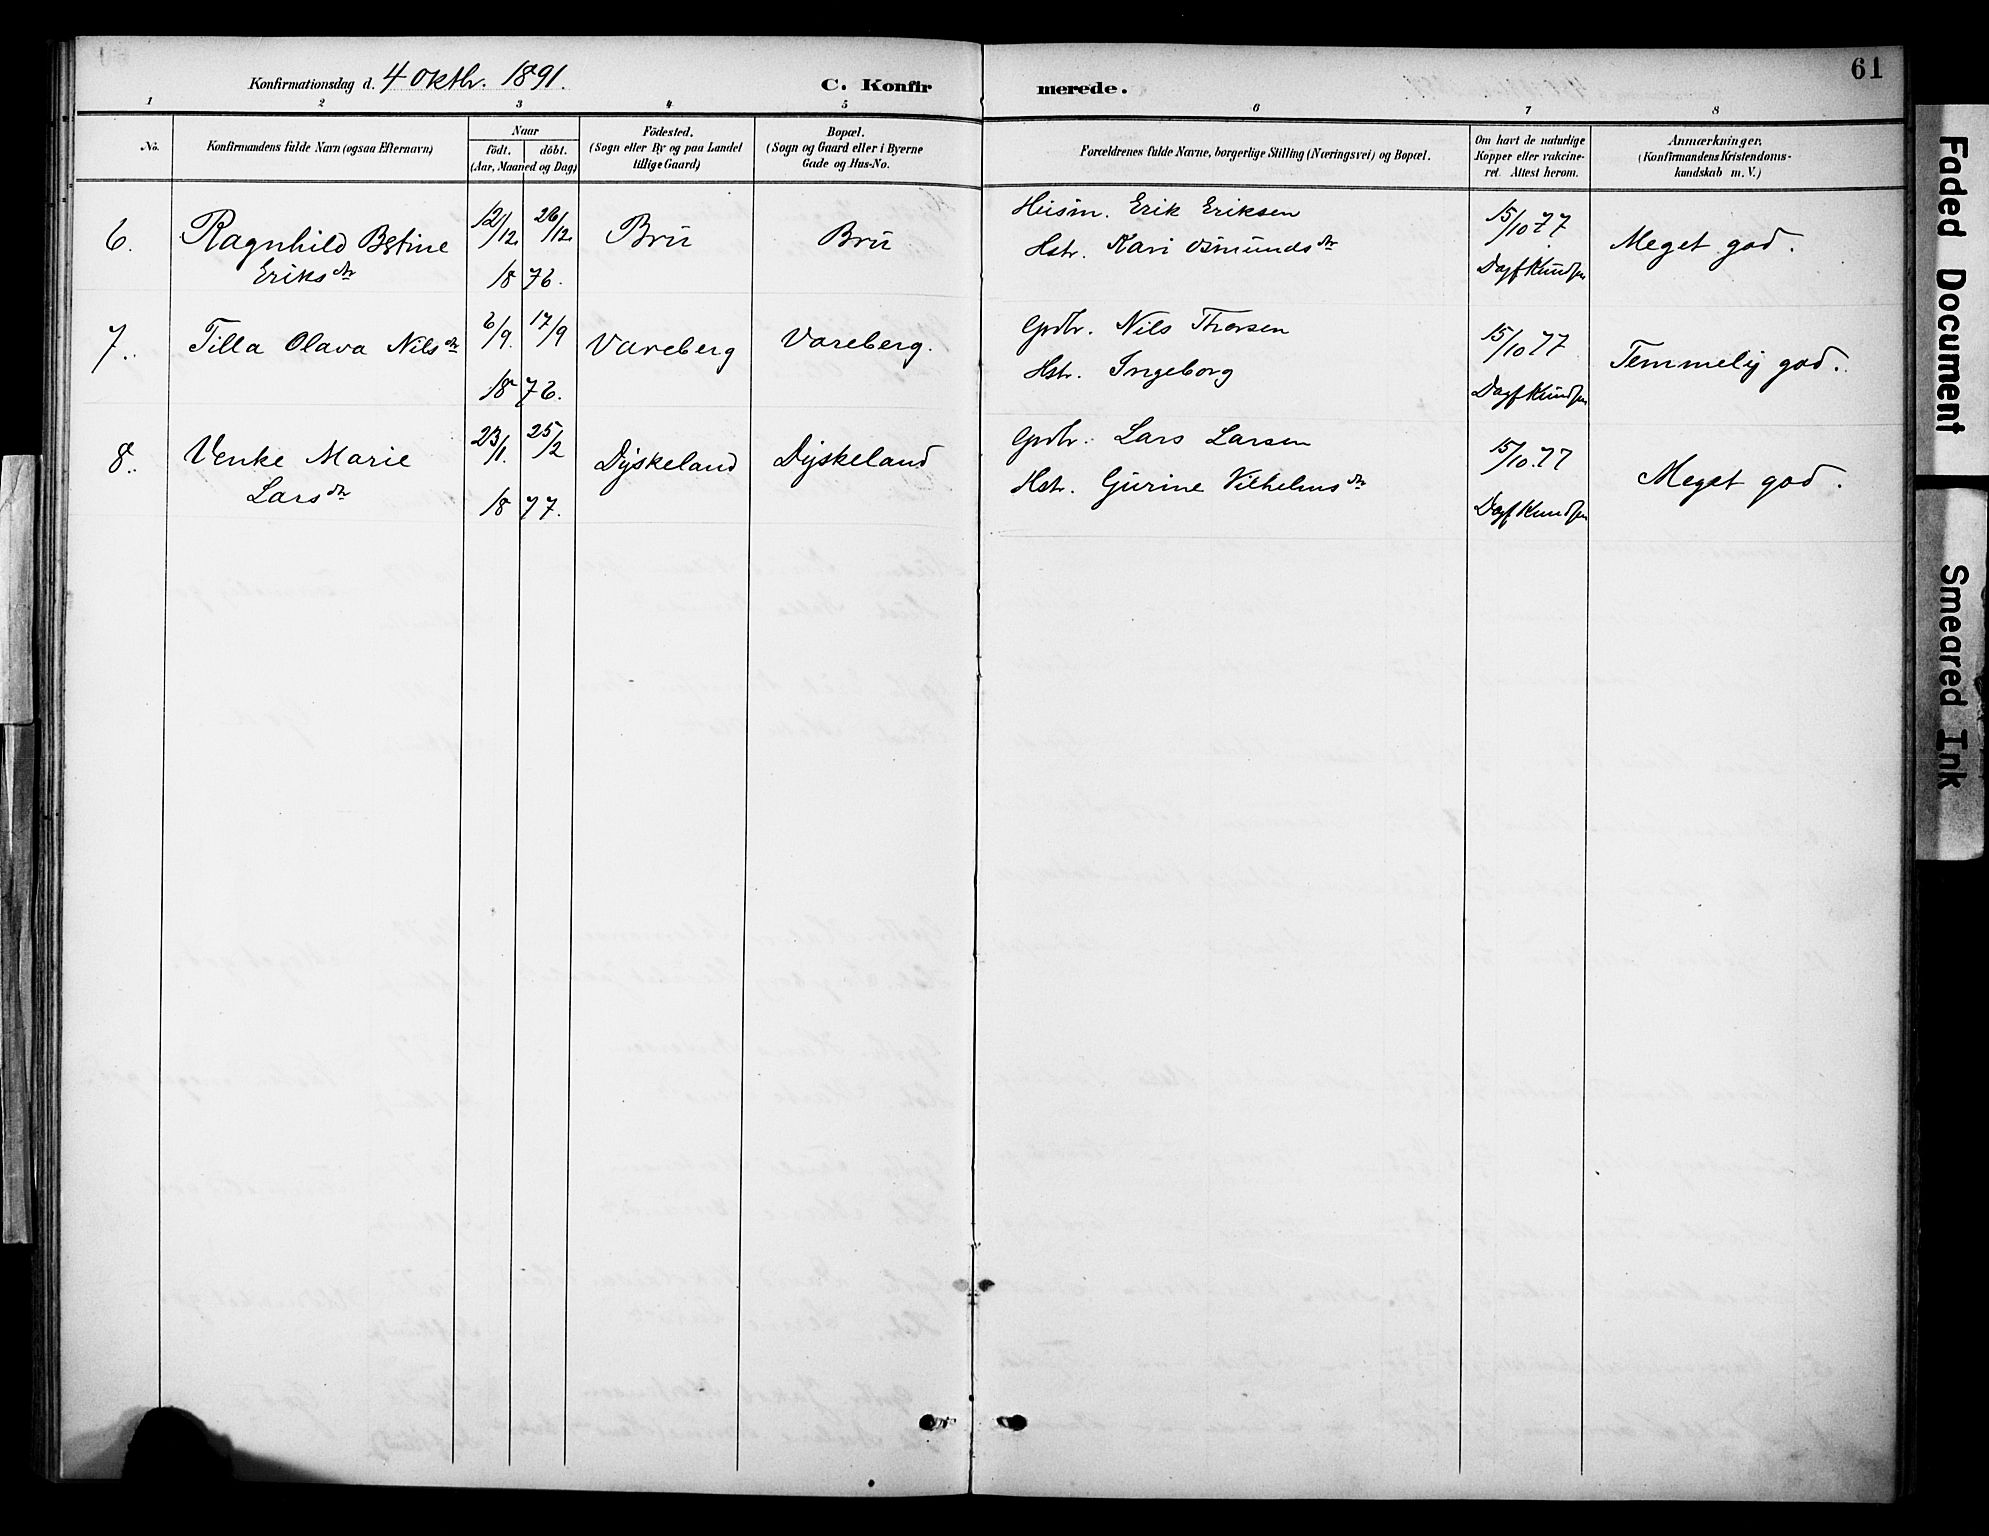 61
Konfirmationsdag d. 4 oktbr. 1891.
C. Konfirmerede.
1 2 3 4 5 6 7 8
No.
Konfirmandens fulde Navn (ogsaa Efternavn)
Naar
födt. döbt.
(Aar, Maaned og Dag)
Födested.
(Sogn eller By og paa Landet
tillige Gaard)
Bopæl.
(Sogn og Gaard eller i Byerne
Gade og Hus-No.
Forældrenes fulde Navne, borgerlige Stilling (Næringsvei) og Bopæl.
Om havt de naturlige
Kopper eller vakcine-
ret. Attest herom.
Anmærkninger.
(Konfirmandens Kristendoms-
kundskab m. V.)
6. Ragnhild Bstine 12/12 26/12 Bru Bru
Eriksdtr 1876.
Husm. Erik Eriksen
Hstr. Kari Osmundsdtr
15/10 77
Dagf Knudsen
Meget god.
7. Tilla Olava Nilsdtr 6/9. 17/9 Vareberg Vareberg.
1876.
Grdbr. Nils Thorsen
Hstr. Ingeborg
15/10 77
Dagf Knudsen
Temmelig god.
8. Venke Marie 23/1. 25/2 Dyskeland Dyskeland
Larsdtr 1877.
Grdbr. Lars Larsen
Hstr. Gurine Vilhelmsdtr
15/10.77
Dagf Knudsen
Meget god.
Faded Document
Smeared Ink